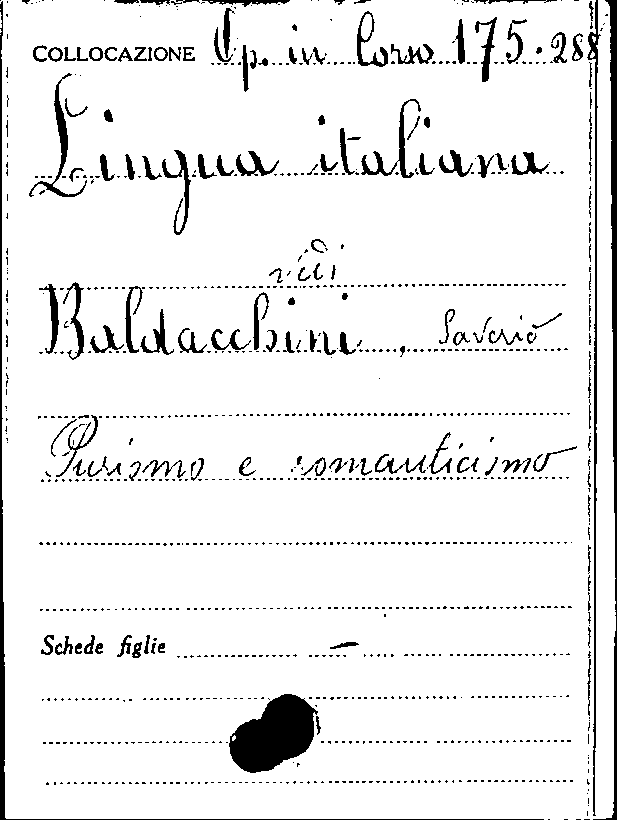 COLLOCAZIONE Op. in Corso 175.288
Lingua italiana
vedi
Baldacchini, Saverio
Purismo e romanticismo
Schede figlie —